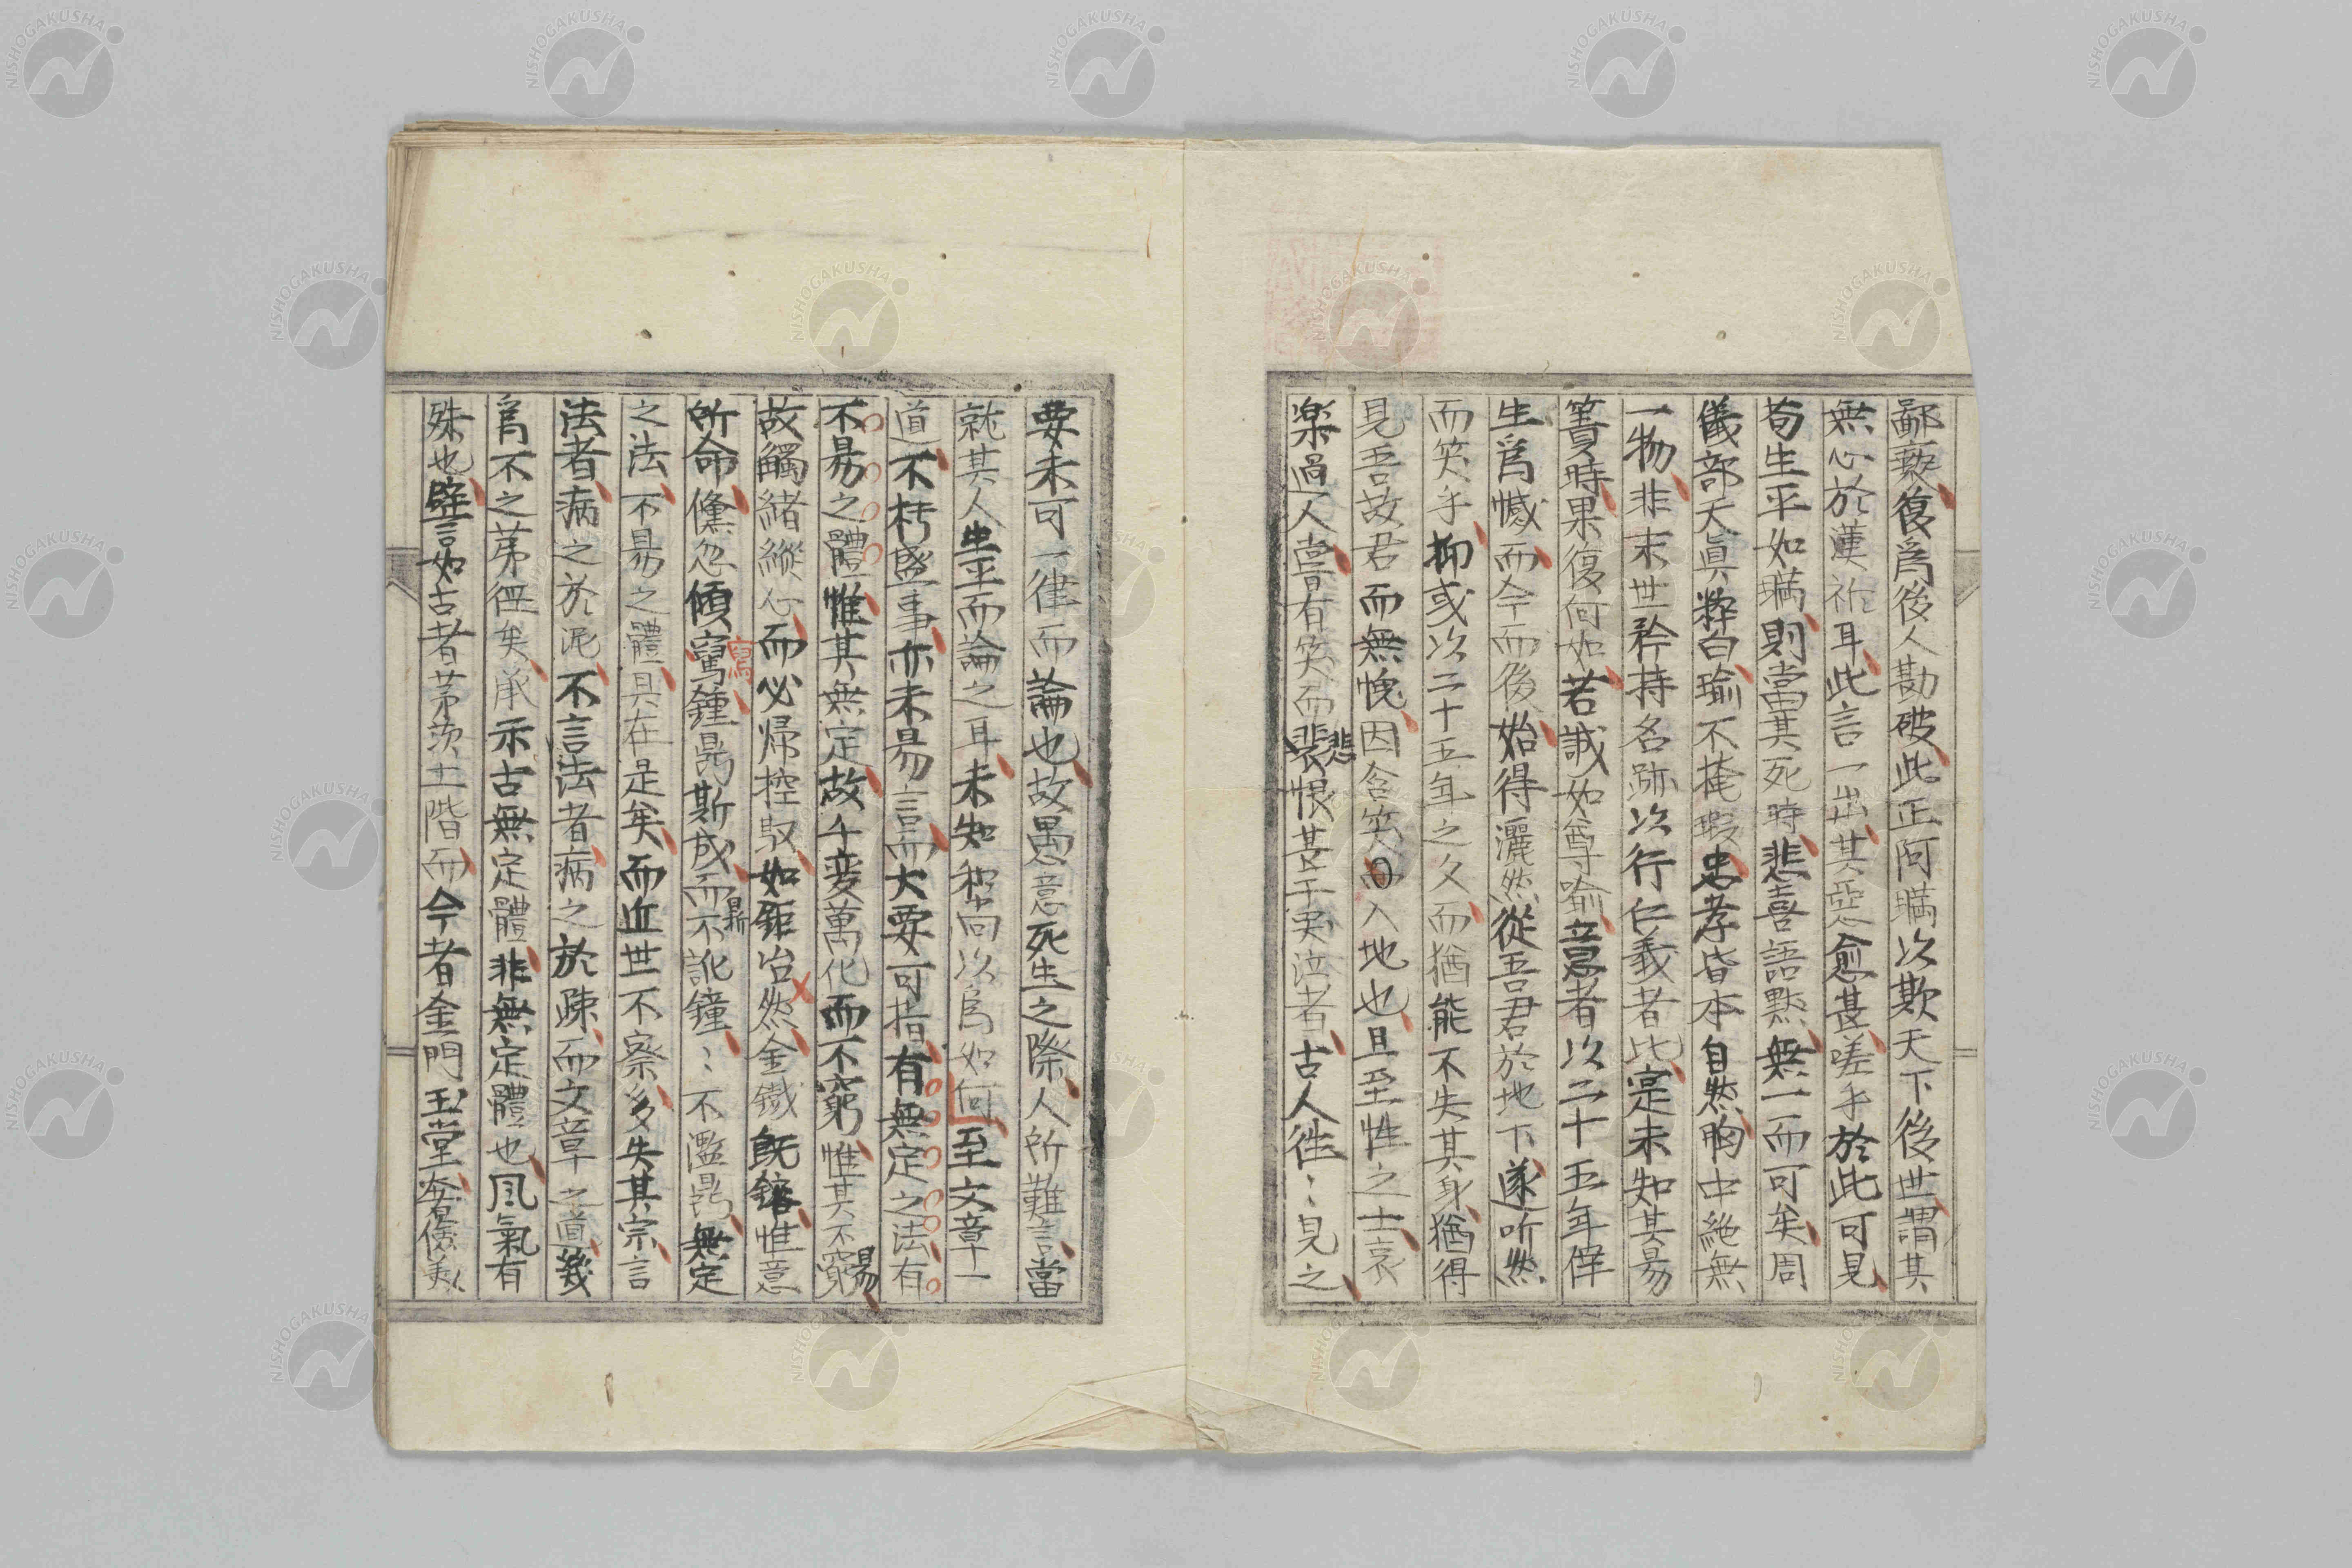 鄙藪復爲後人勘破此正阿瞞以欺天下後世謂其
無心於漢祚耳此言一出其惡愈甚嗟乎於此可見
荀生平如瞞則當其死時悲喜語默無一而可矣周
儀部天眞粹白瑜不掩瑕忠孝皆本自然胸中絶無
一物非末世矜持名跡以行仁義者比寔未知其易
簀時果復何如若誠如尊喻意者以二十五年倖
生爲憾而今而後始得灑然從吾君於地下遂听然
而笑乎抑或以二十五年之久而猶能不失其身猶得
見吾故君而無愧因含笑入地也且至性之士哀
楽過人嘗有笑而悲恨甚于哭泣者古人徃〻見之
要未可一律而論也故愚意死生之際人所難言當
就其人生平而論之耳未知稚尚以爲如何至文章一
道不朽盛事亦未易言而大要可指有無定之法有
不易之體惟其無定故千変萬化而不窮惟其不易
故觸緒縱心而必帰控馭如鉅冶然金鐵既鎔惟意
所命儵忽傾寫鍾鼎斯成而鼎不訛鐘〻不濫鼎無定
之法不易之體具在是矣而近世不察多失其宗言
法者病之於泥不言法者病之於疎而文章之道幾
爲不之苐徑矣承示古無定體非無定體也風氣有
殊也譬言如古者茅茨土階而今者金門玉堂奢儉美